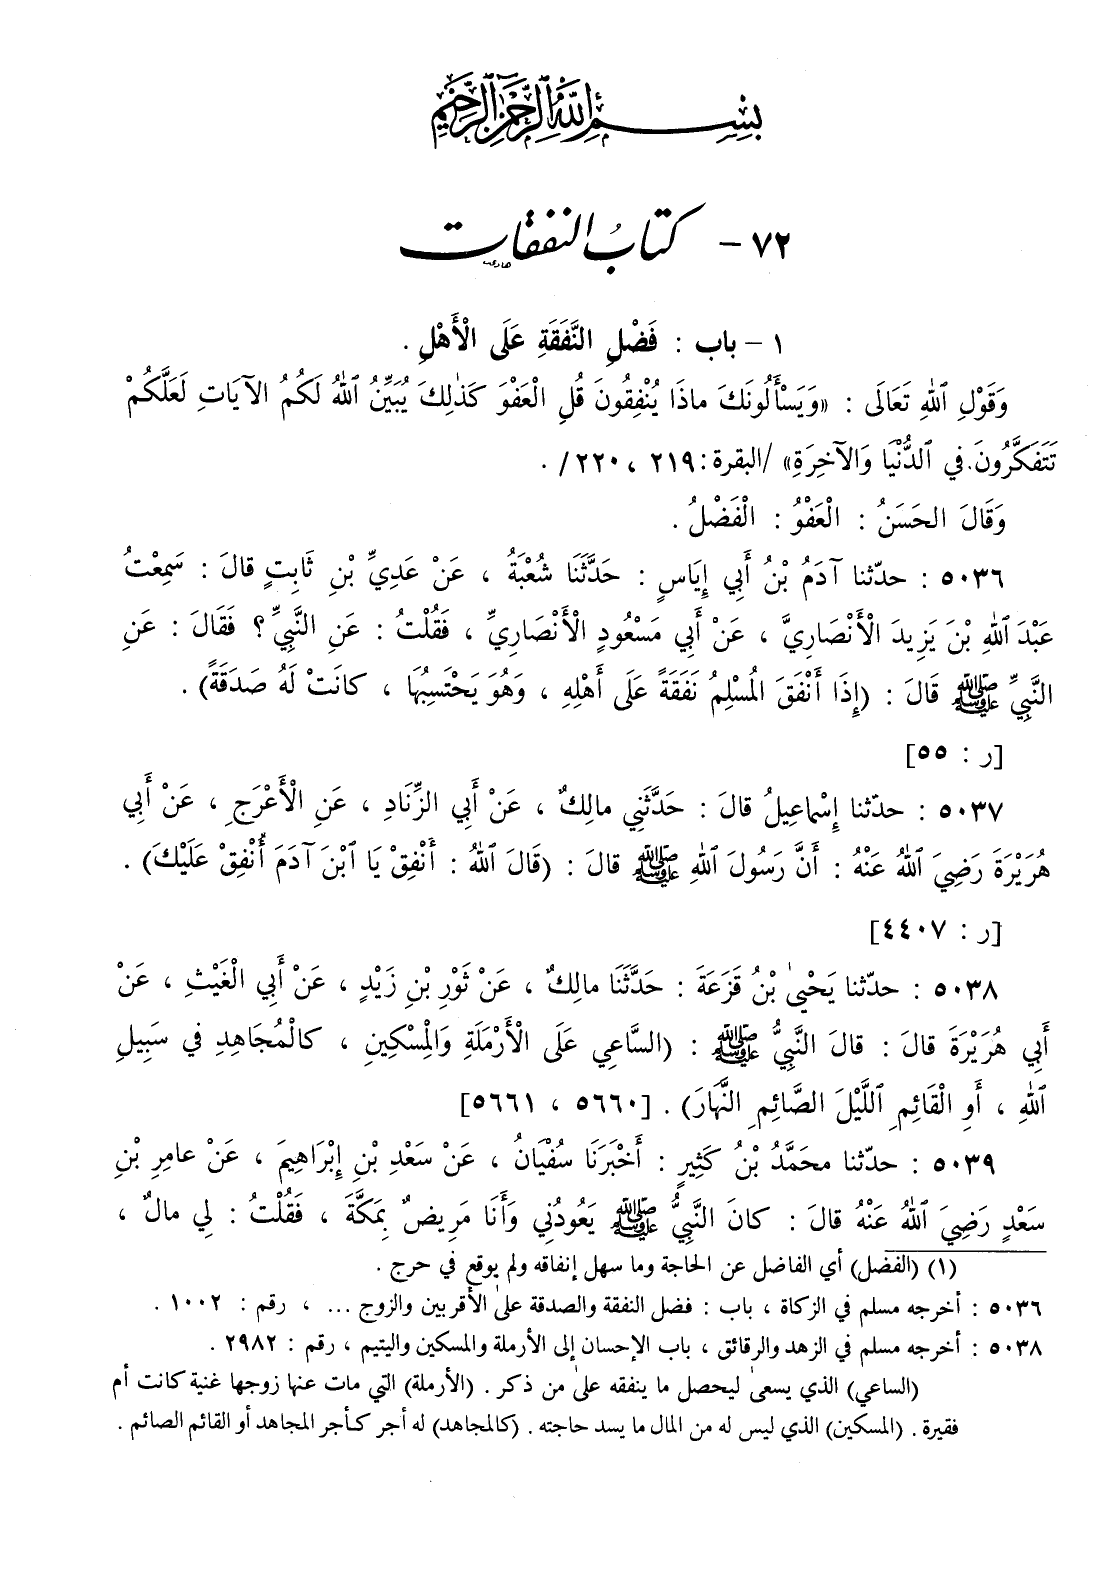 بِسْمِ ٱللَّهِ ٱلرَّحْمَٰنِ ٱلرَّحِيمِ
٧٢ – كتابُ النفقات
١ – باب : فَضْلِ النَّفَقَةِ عَلَى الْأَهْلِ .
وَقَوْلِ ٱللهِ تَعَالَى : «وَيَسْأَلُونَكَ ماذَا يُنْفِقُونَ قُلِ الْعَفْوَ كَذٰلِكَ يُبَيِّنُ ٱللهُ لَكُمُ الآيَاتِ لَعَلَّكُمْ
تَتَفَكَّرُونَ. في ٱلدُّنْيَا وَالآخِرَةِ» /البقرة: ٢١٩ ، ٢٢٠/ .
وَقَالَ الحَسَنُ : الْعَفْوُ : الْفَضْلُ .
٥٠٣٦ : حدّثنا آدَمُ بْنُ أَبِي إِيَاسٍ : حَدَّثَنَا شُعْبَةُ ، عَنْ عَدِيِّ بْنِ ثَابِتٍ قالَ : سَمِعْتُ
عَبْدَ ٱللهِ بْنَ يَزِيدَ الْأَنْصَارِيَّ ، عَنْ أَبِي مَسْعُودٍ الْأَنْصَارِيِّ ، فَقُلْتُ : عَنِ النَّبِيِّ ؟ فَقَالَ : عَنِ
النَّبِيِّ ﷺ قَالَ : (إِذَا أَنْفَقَ المُسْلِمُ نَفَقَةً عَلَى أَهْلِهِ ، وَهُوَ يَحْتَسِبُهَا ، كانَتْ لَهُ صَدَقَةً) .
[ر : ٥٥]
٥٠٣٧ : حدّثنا إِسْماعِيلُ قالَ : حَدَّثَنِي مالِكٌ ، عَنْ أَبِي الزِّنَادِ ، عَنِ الْأَعْرَجِ ، عَنْ أَبِي
هُرَيْرَةَ رَضِيَ ٱللهُ عَنْهُ : أَنَّ رَسُولَ ٱللهِ ﷺ قالَ : (قَالَ ٱللهُ : أَنْفِقْ يَا ٱبْنَ آدَمَ أُنْفِقْ عَلَيْكَ) .
[ر : ٤٤٠٧]
٥٠٣٨ : حدّثنا يَحْيىٰ بْنُ قَزَعَةَ : حَدَّثَنَا مالِكٌ ، عَنْ ثَوْرِ بْنِ زَيْدٍ ، عَنْ أَبِي الْغَيْثِ ، عَنْ
أَبِي هُرَيْرَةَ قالَ : قالَ النَّبِيُّ ﷺ : (السَّاعِي عَلَى الْأَرْمَلَةِ وَالْمِسْكِينِ ، كالْمُجَاهِدِ في سَبِيلِ
ٱللهِ ، أَوِ الْقَائِمِ ٱللَّيْلَ الصَّائِمِ النَّهَارَ) . [٥٦٦٠ ، ٥٦٦١]
٥٠٣٩ : حدّثنا محَمَّدُ بْنُ كَثِيرٍ : أَخْبَرَنَا سُفْيَانُ ، عَنْ سَعْدِ بْنِ إِبْرَاهِيمَ ، عَنْ عامِرِ بْنِ
سَعْدٍ رَضِيَ ٱللهُ عَنْهُ قالَ : كانَ النَّبِيُّ ﷺ يَعُودُنِي وَأَنَا مَرِيضٌ بِمَكَّةَ ، فَقُلْتُ : لِي مالٌ ،
(١) (الفضل) أي الفاضل عن الحاجة وما سهل إنفاقه ولم يوقع في حرج .
٥٠٣٦ : أخرجه مسلم في الزكاة ، باب : فضل النفقة والصدقة علىٰ الأقربين والزوج ... ، رقم : ١٠٠٢ .
٥٠٣٨ : أخرجه مسلم في الزهد والرقائق ، باب الإحسان إلى الأرملة والمسكين واليتيم ، رقم : ٢٩٨٢ .
(الساعي) الذي يسعىٰ ليحصل ما ينفقه علىٰ من ذكر . (الأرملة) التي مات عنها زوجها غنية كانت أم
فقيرة . (المسكين) الذي ليس له من المال ما يسد حاجته . (كالمجاهد) له أجر كأجر المجاهد أو القائم الصائم .